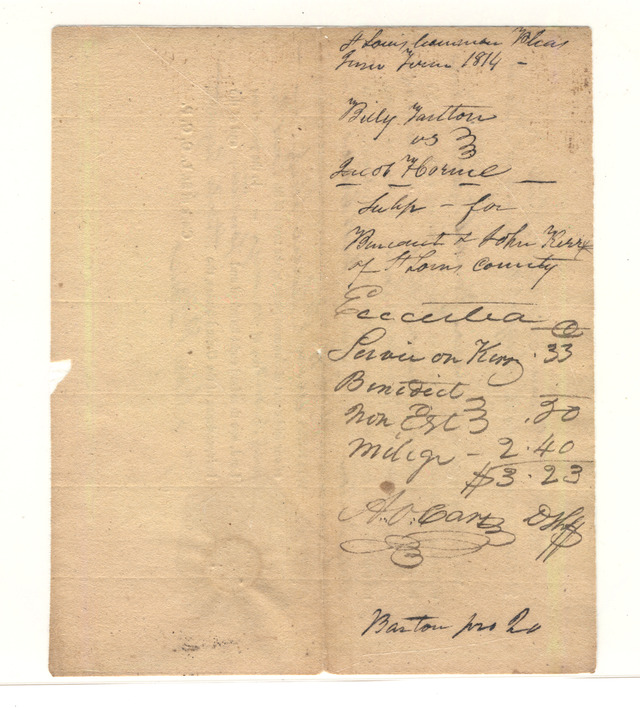 St Louis Common Pleas
June Term 1814 -
Billy Tarlton
vs
Jacob Horine
Subp - for
& John Kerr
of St Louis County
Executed
Service on Kerr . 33
Benedict
Non Est .50
Milige - 2.40
$3.23
A. O. Carr D Shff
Barton pro